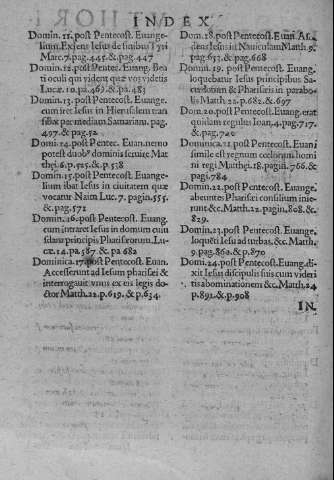 INDEX
Domin. 11. post Pentecost. Euange-
lium. Exiens Iesus de finibus Tyri
Marc. 7. pag. 445. & pag. 447
Domin. 12. post Pentec. Euang. Bea
ti oculi qui vident quæ vos videtis
Luc. 10. pa. 463. & pa. 483
Domin. 13. post Pentecost. Euang.
cum iret Iesus in Hierusalem tran
sibat per mediam Samariam. pag.
497. & pag. 52
Domi. 14. post Pentec. Euan. nemo
potest duobº dominis seruire Mat
thei. 6. p. 525. & p. 538
Domin. 15. post Pentecost. Euange-
lium ibat Iesus in ciuitatem quæ
vocatur Naim Luc. 7. pagin. 555.
& pag. 571
Domin. 16. post Pentecost. Euang.
cum intraret Iesus in domum cuius
dam principis Pharisæorum. Lu-
cæ. 14. pa. 587 & pa 682
Dominica. 17. post Pentecost. Euan.
Accesserunt ad Iesum pharisei &
interrogauit vnus ex eis legis do-
ctor Matth. 22. p. 619. & p. 634.
Dom. 18. post Pentecost. Euan. Ascē
dens Iesus in Nauiculam Matth. 9.
pag. 653. & pag. 668
Domin. 19. post Pentecost. Euang.
loquebatur Iesus principibus Sa-
cerdotum & Pharisæis in parabo-
lis Matth. 22. p. 682. & 697
Dom. 20. post Pentecost. Euang. erat
quidam regulus Ioan. 4. pag. 717.
& pag. 740
Dominica. 21. post Pentecost. Euani
simile est regnum cœlorum homi
ni regi Matthei. 18. pagin. 766. &
pagi. 784
Domin. 22. post Pentecost. Euange.
abeuntes Pharisei consilium inie-
runt &c. Matth. 22. pagin. 808. &
829.
Domin. 23. post Pentecost. Euang.
loquēti Iesu ad turbas, &c. Matth.
9. pag. 860. & p. 870
Domi. 24. post Pentecost. Euang. di-
xit Iesus discipulis suis cum videri
tis abominationem &c. Matth. 24
p. 892. & p. 908
IN.